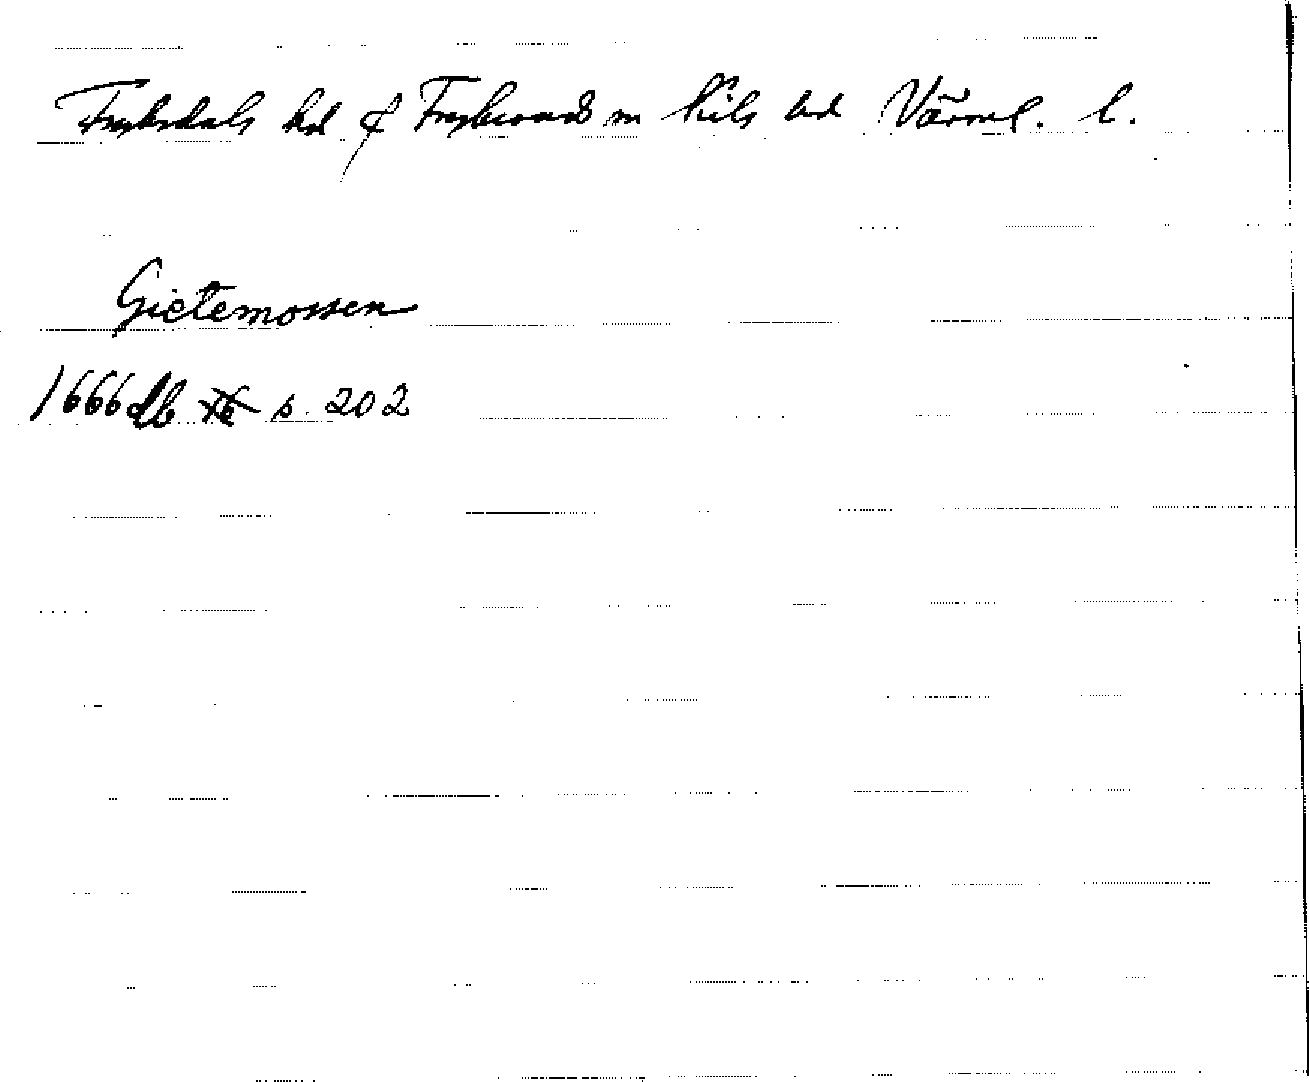 Fryksdals hd & Fryksands sn Kils hd Värml. l.
Gietemossen
1666 db s. 202